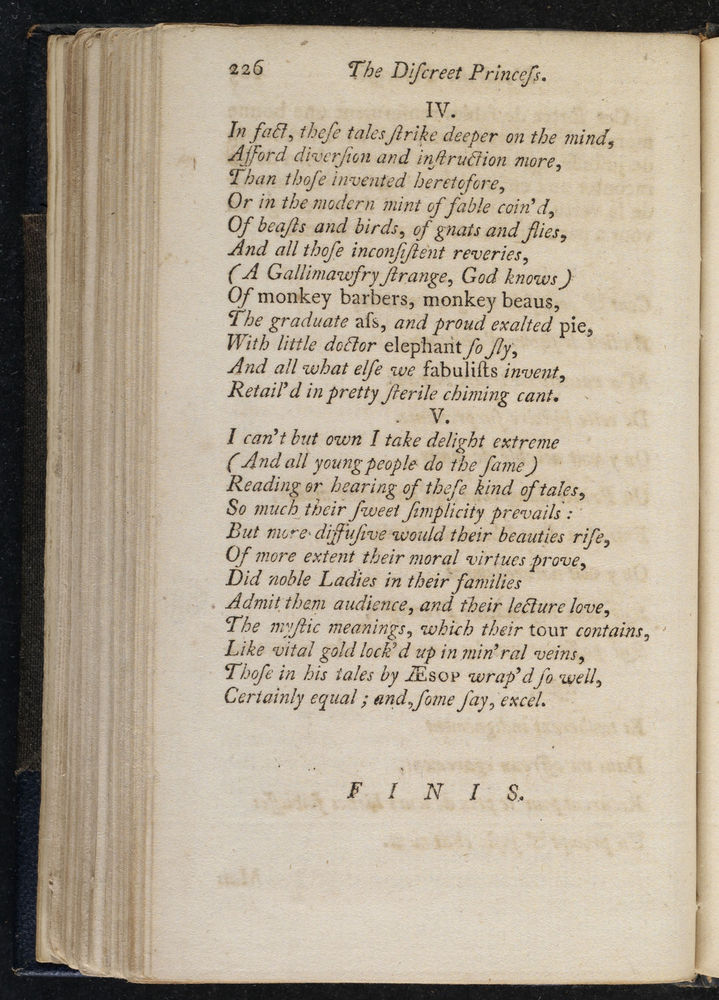 226 The Diſcreet Princeſs.
IV.
In fact, theſe tales ſtrike deeper on the mind,
Afford diverſion and inſtruction more,
Than thoſe invented heretofore,
Or in the modern mint of fable coin'd,
Of beaſts and birds, of gnats and flies,
And all thoſe inconſiſtent reveries,
(A Gallimawfry ſtrange, God knows)
Of monkey barbers, monkey beaus,
The graduate aſs, and proud exalted pie,
With little doctor elephant ſo ſly,
And all what elſe we fabuliſts invent,
Retail'd in pretty ſterile chiming cant.
V.
I can't but own I take delight extreme
(And all young people do the ſame)
Reading or hearing of theſe kind of tales,
So much their ſweet ſimplicity prevails:
But more diffuſive would their beauties riſe,
Of more extent their moral virtues prove,
Did noble Ladies in their families
Admit them audience, and their lecture love,
The myſtic meanings, which their tour contains,
Like vital gold lock'd up in min'ral veins,
Thoſe in his tales by ÆSOP wrap'd ſo well,
Certainly equal; and, ſome ſay, excel.
F I N I S.